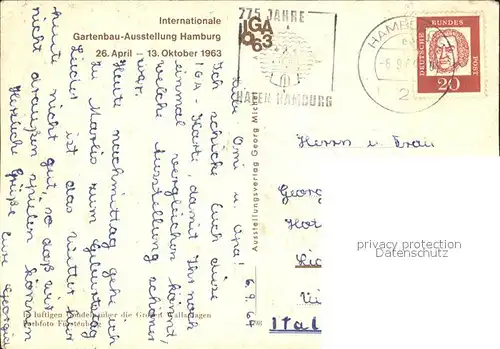 Internationale
Gartenbau-Ausstellung Hamburg
26. April — 13. Oktober 1963
IGA 63
775 JAHRE
HAFEN HAMBURG
HAMBURG
DEUTSCHE BUNDES POST
20
Omi u. Opa!
6.9.64
Ich schicke Euch diese
IGA-Karte, damit Ihr noch
einmal vergleichen könnt,
welche Ausstellung schöner
war.
Heute nachmittag gehe ich
zu zum Geburtstag.
Leider ist das Wetter
heute nicht gut, so daß wir
nicht draußen spielen können
Herzliche Grüße Eure Georgia
Ausstellungsverlag Georg Michel
In luftigen über die Großen Wallanlagen
Herrn u. Frau
Georg
Hot
Ital
privacy protection
Datenschutz